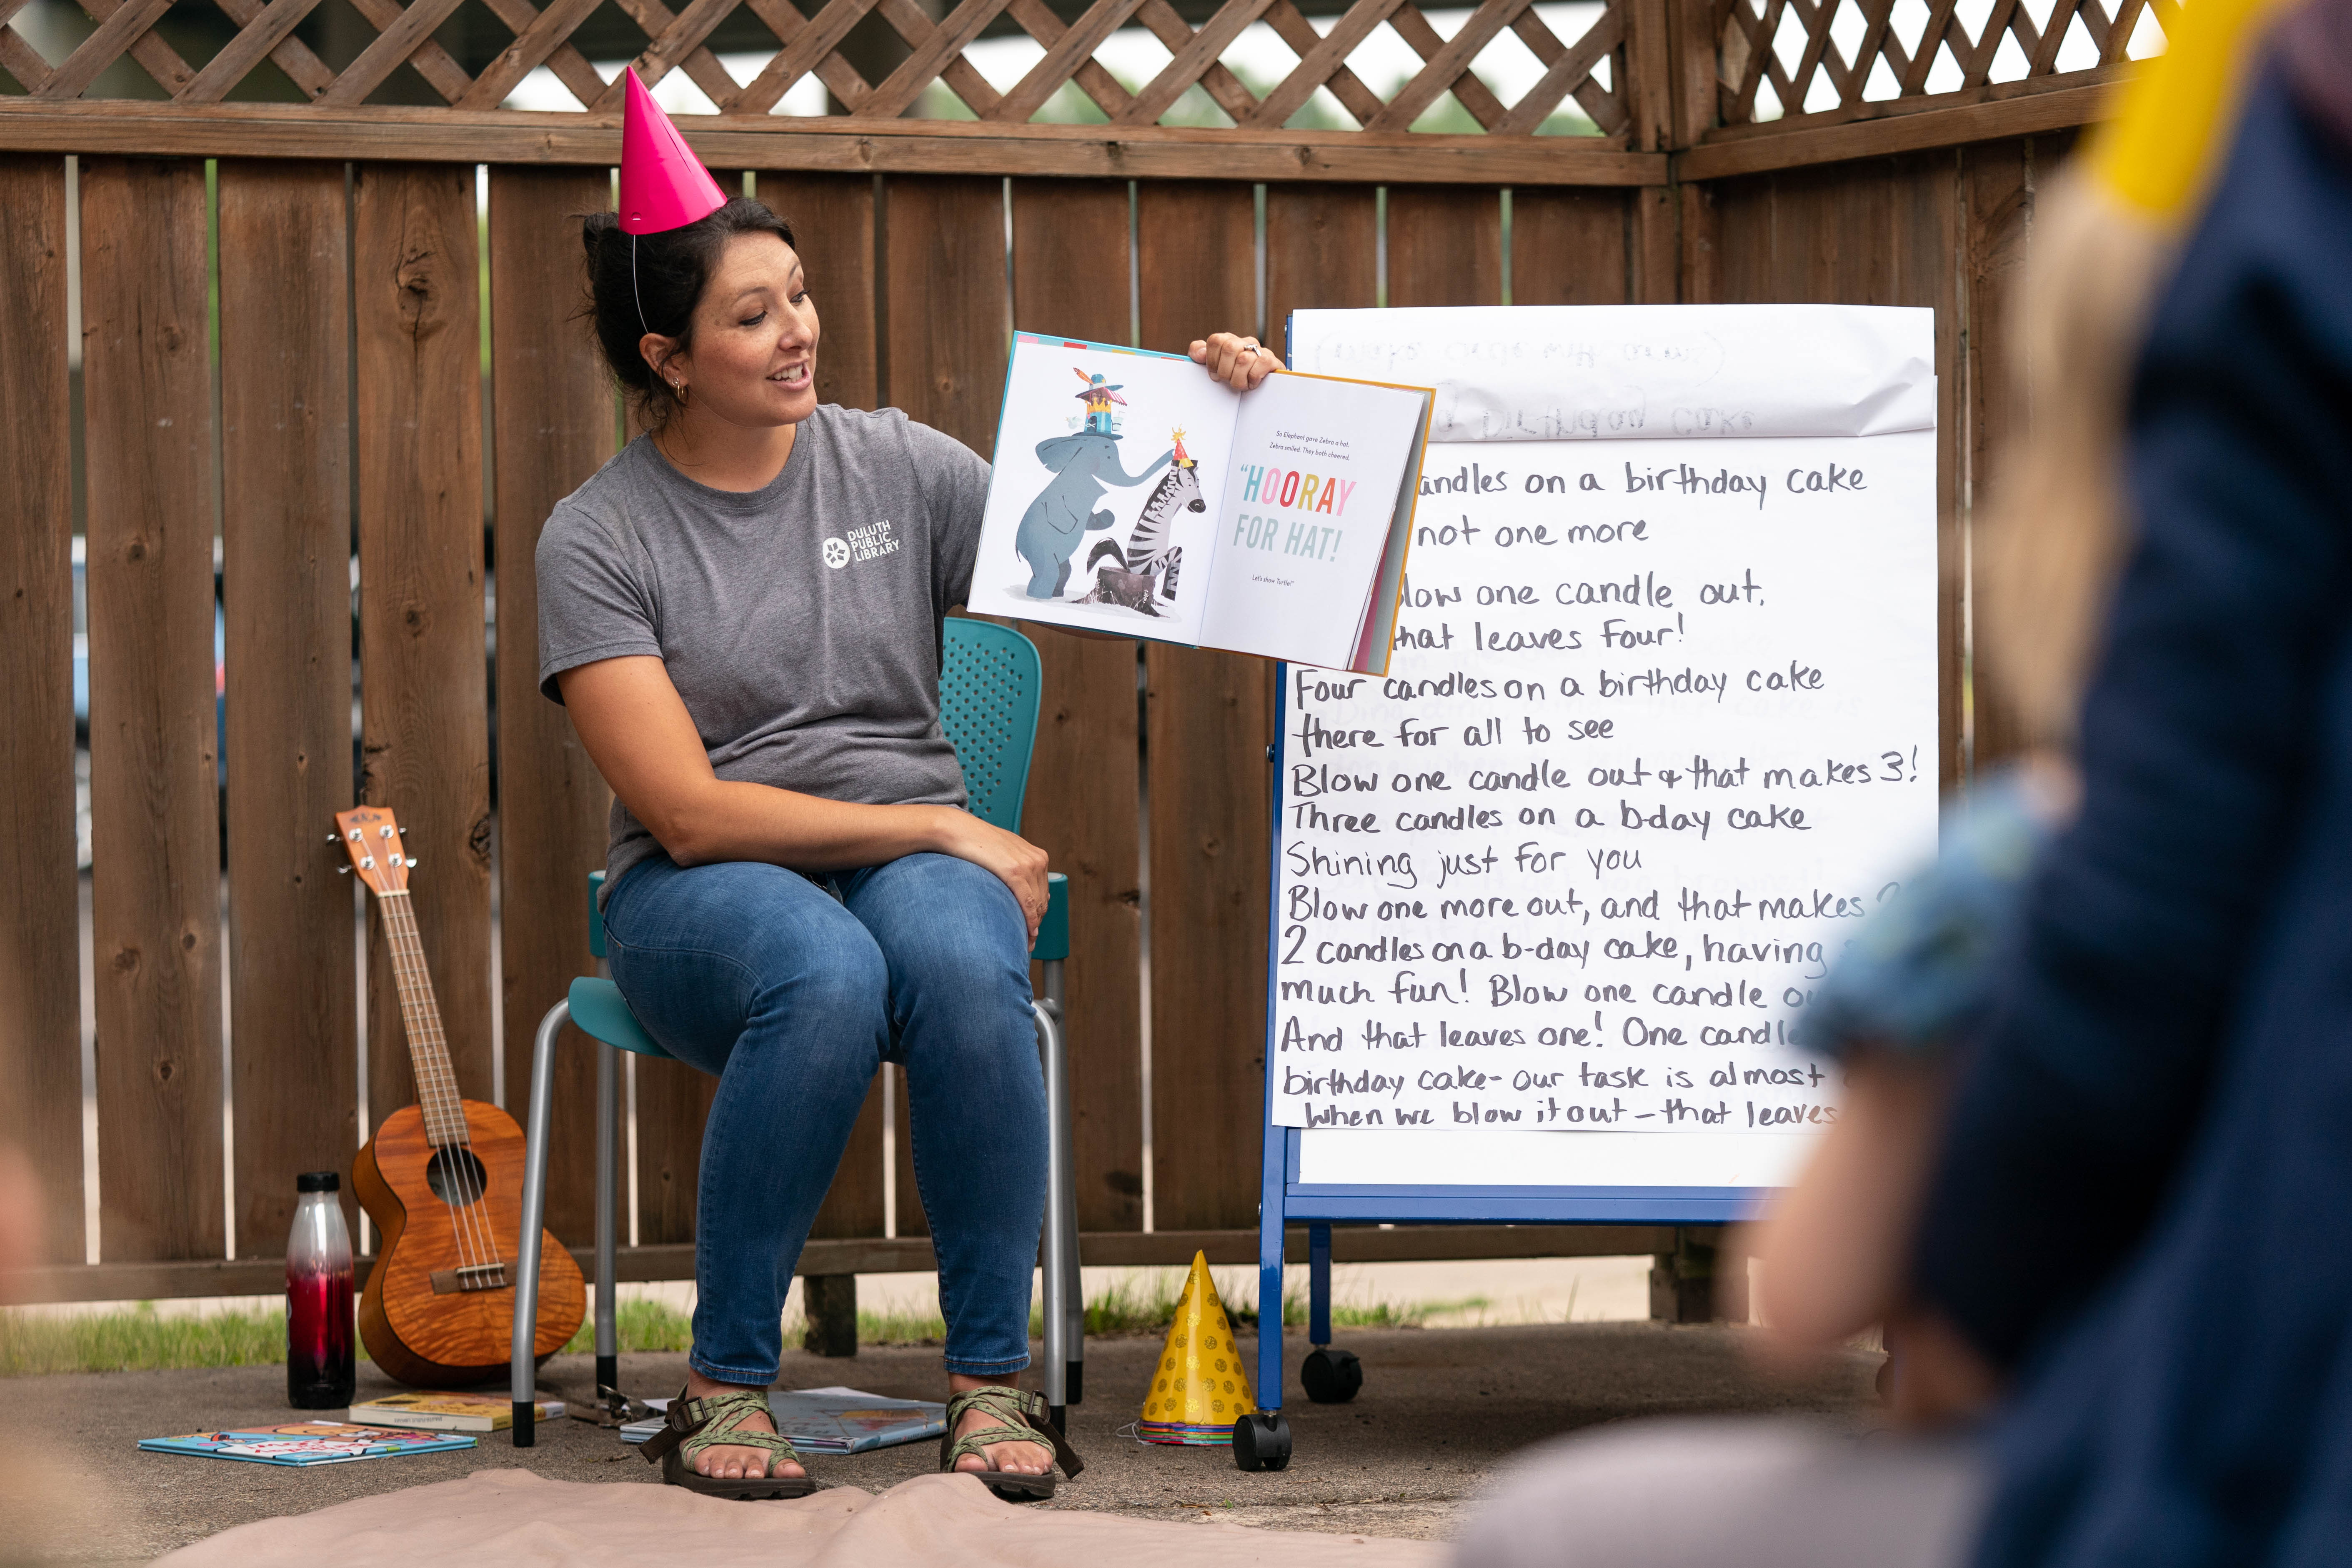 DULUTH
PUBLIC
LIBRARY
So Elephant gave Zebra a hat.
Zebra smiled. They both cheered,
"HOORAY
FOR HAT!
Let's show Turtle!"
birthday cake
andles on a birthday cake
not one more
low one candle out.
hat leaves four!
Four candles on a birthday cake
there for all to see
Blow one candle out & that makes 3!
Three candles on a b-day cake
Shining just for you
Blow one more out, and that makes
2 candles on a b-day cake, having
much fun! Blow one candle
And that leaves one! One candle
birthday cake- our task is almost
When we blow it out - that leaves